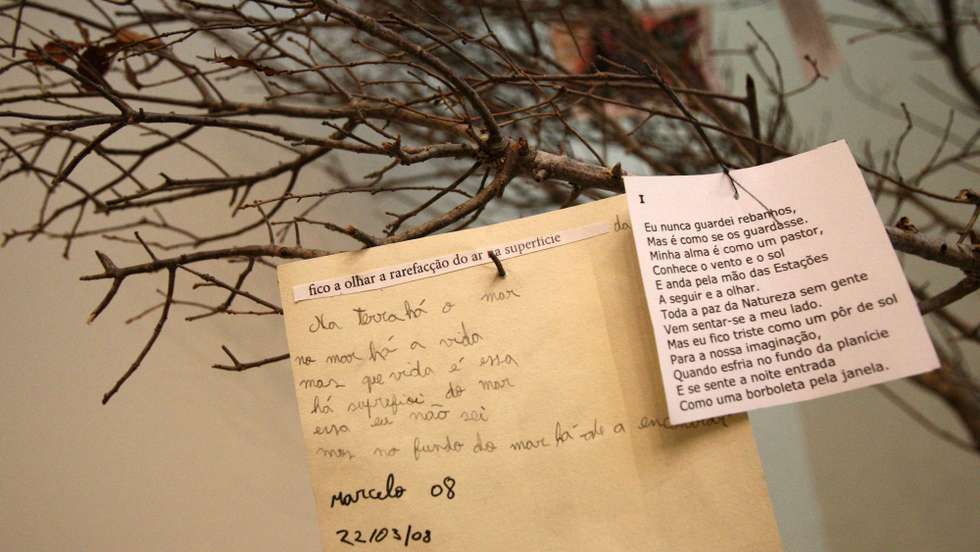 fico a olhar a rarefacção do ar na superfície
da
Na terra há o mar
no mar há a vida
mas que vida é essa
há suprefioi do mar
essa eu não sei
mas no fundo do mar há-de a encontrar
Marcelo 08
22/03/08
I
Eu nunca guardei rebanhos,
Mas é como se os guardasse.
Minha alma é como um pastor,
Conhece o vento e o sol
E anda pela mão das Estações
A seguir e a olhar.
Toda a paz da Natureza sem gente
Vem sentar-se a meu lado.
Mas eu fico triste como um pôr de sol
Para a nossa imaginação,
Quando esfria no fundo da planície
E se sente a noite entrada
Como uma borboleta pela janela.